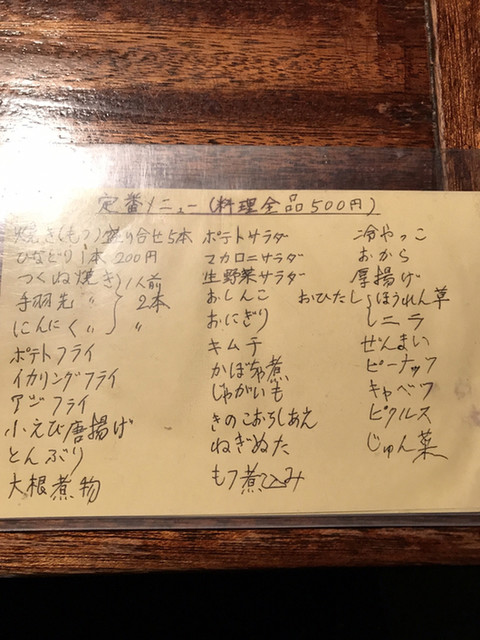 定番メニュー(料理全品500円)
焼き(もつ)盛り合せ5本
ひなどり1本200円
つくね焼き 1人前
手羽先 〃 2本
にんにく 〃 〃
ポテトフライ
イカリングフライ
アジフライ
小えび唐揚げ
とんぶり
大根煮物
ポテトサラダ
マカロニサラダ
生野菜サラダ
おしんこ
おにぎり
キムチ
かぼちゃ煮
じゃがいも
きのこおろしあえ
ねぎぬた
もつ煮込み
冷やっこ
おから
厚揚げ
おひたし ほうれん草
ニラ
ぜんまい
ピーナッツ
キャベツ
ピクルス
じゅん菜